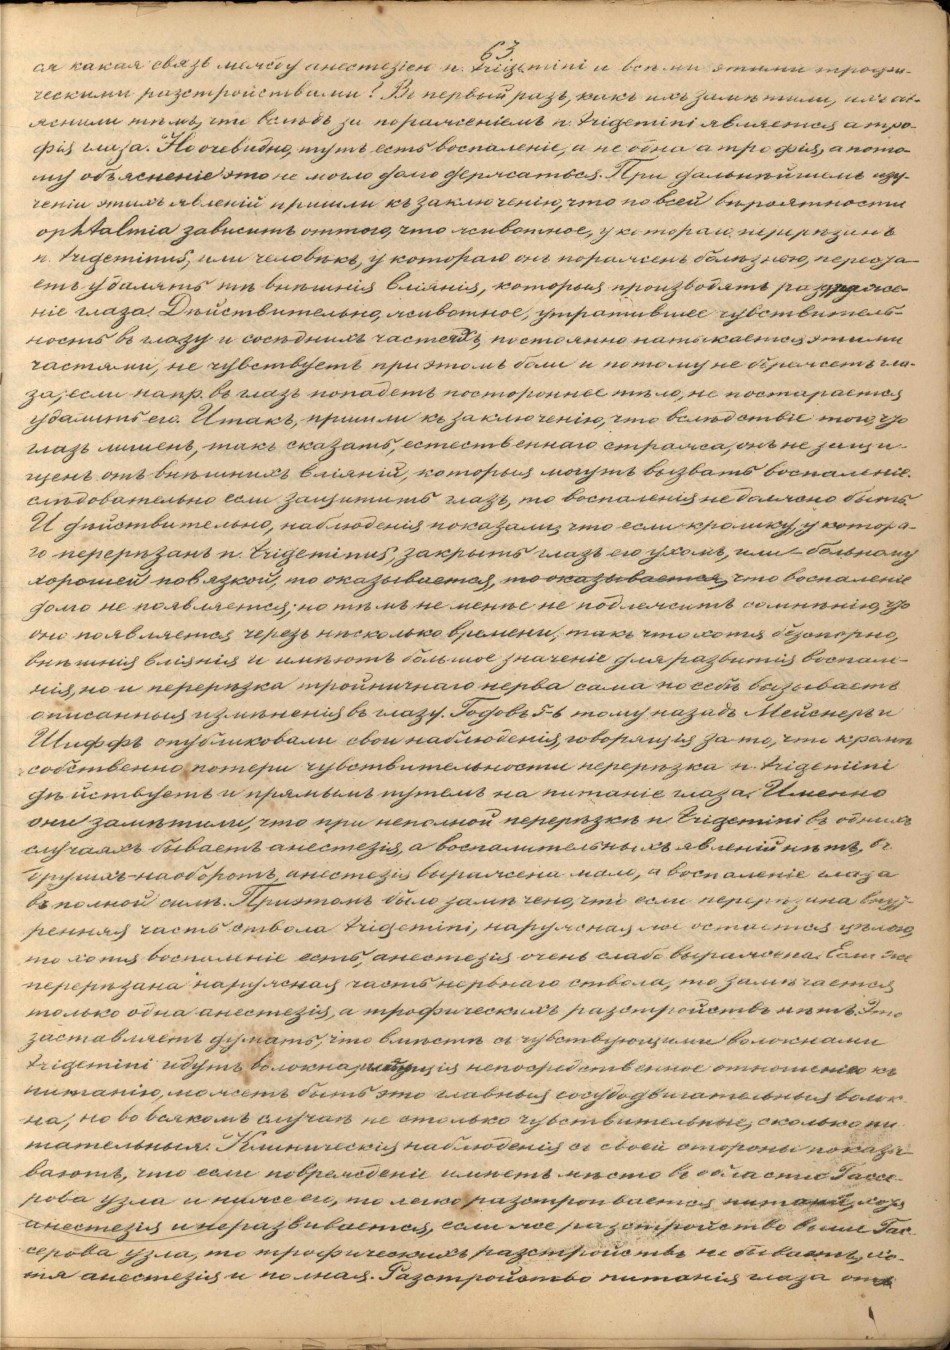 63
ся какая связь между анестезіею n. trigemini и всѣми этими трофи-
ческими разстройствами? Въ первый разъ, какъ ихъ замѣтили, ихъ объ-
яснили тѣмъ, что вслѣдъ за пораженіемъ n. trigemini является атро-
фія глаза. Но очевидно, тутъ есть воспаленіе, а не одна атрофія, а пото-
му объясненіе это не могло долго держаться. При дальнѣйшемъ изу-
ченіи этихъ явленій пришли къ заключенію, что по всей вѣроятности
ophtalmia зависитъ оттого, что животное, у котораго перерѣзанъ
n. trigeminus, или человѣкъ, у котораго онъ пораженъ болѣзнью, переста-
етъ удалять тѣ внѣшнія вліянія, которыя производятъ раздраже-
ніе глаза. Дѣйствительно, животное, утратившее чувствитель-
ность въ глазу и сосѣднихъ частяхъ, постоянно натыкается этими
частями, не чувствуетъ при этомъ боли и потому не бережетъ гла-
за, если напр. въ глазъ попадетъ постороннее тѣло, не постарается
удалить его. Итакъ, пришли къ заключенію, что вслѣдствіе того, что
глазъ лишенъ, такъ сказать, естественнаго стража, онъ не защи-
щенъ отъ внѣшнихъ вліяній, которыя могутъ вызвать воспаленіе.
слѣдовательно если защитить глазъ, то воспаленія не должно быть.
И дѣйствительно, наблюденія показали, что если кролику, у котора-
го перерѣзанъ n. trigeminus, закрыть глазъ его ухомъ, или больному
хорошей повязкой, то оказывается, то оказывается, что воспаленіе
долго не появляется; но тѣмъ не менѣе не подлежитъ сомнѣнію, что
оно появляется черезъ нѣсколько времени, такъ что хотя безспорно,
внѣшнія вліянія и имѣютъ большое значеніе для развитія воспале-
нія, но и перерѣзка тройничнаго нерва сама по себѣ вызываетъ
описанныя измѣненія въ глазу. Годовъ 5-ь тому назадъ Мейснеръ и
Шиффъ опубликовали свои наблюденія, говорящія за то, что кромѣ
собственно потери чувствительности перерѣзка n. trigemini
дѣйствуетъ и прямымъ путемъ на питаніе глаза. Именно
они замѣтили, что при неполной перерѣзкѣ n. trigemini въ однихъ
случаяхъ бываетъ анестезія, а воспалительныхъ явленій нѣтъ, въ
другихъ - наоборотъ, анестезія выражена мало, а воспаленіе глаза
въ полной силѣ. При этомъ было замѣчено, что если перерѣзана внут-
ренняя часть ствола trigemini, наружная же остается цѣлою,
то хотя воспаленіе есть, анестезія очень слабо выражена. Если же
перерѣзана наружная часть нервнаго ствола, то замѣчается
только одна анестезія, а трофическихъ разстройствъ нѣтъ. Это
заставляетъ думать, что вмѣстѣ съ чувствующими волокнами
trigemini идутъ волокна, непосредственное отношеніе къ
питанію, можетъ быть это главныя сосудодвигательныя волок-
на, но во всякомъ случаѣ не столько чувствительныя, сколько пи-
тательныя. Клиническія наблюденія съ своей стороны показы-
ваютъ, что если поврежденіе имѣетъ мѣсто въ области Гассе-
рова узла и ниже его, то легко разстроивается питаніе, хотя
анестезія и не развивается, если же разстройство выше Гас-
серова узла, то трофическихъ разстройствъ не бываетъ, хо-
тя анестезія и полная. Разстройство питанія глаза отъ